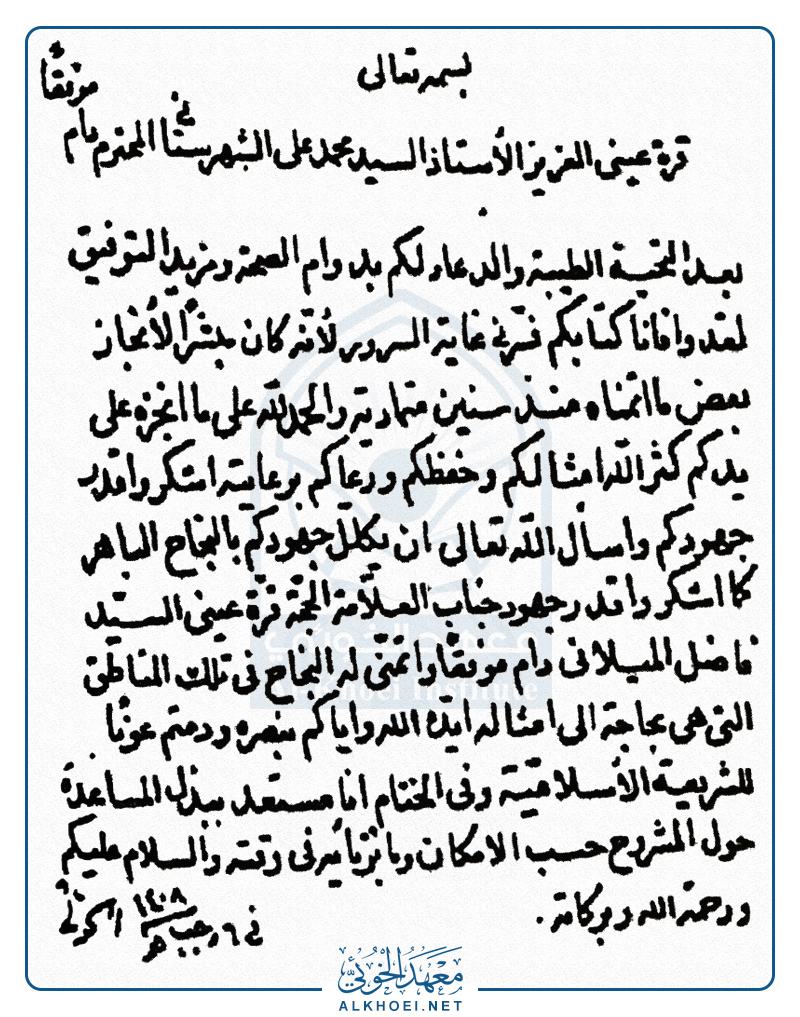 بسمه تعالى
قرة عيني العزيز الأستاذ السيد محمد علي الشهرستاني المحترم دام موفقاً
بعد التحية الطيبة والدعاء لكم بدوام الصحة ومزيد التوفيق
لقد وافانا كتابكم فسرني غاية السرور لأنّه كان مبشراً لأنجاز
بعض ما اتمناه منذ سنين متمادية والحمد لله على ما انجزه على
يدكم كثر الله امثالكم وحفظكم ورعاكم برعايته اشكر واقدر
جهودكم واسأل الله تعالى ان يكلل جهودكم بالنجاح الباهر
كما اشكر واقدر جهود جناب العلّامة الحجة قرّة عيني السيد
فاضل الميلاني دام موفقاً واتمنّى له النجاح في تلك المناطق
التي هي بحاجة الى امثاله ايده الله واياكم بنصره ودمتم عوناً
للشريعة الأسلاميّة وفي الختام انا مستعد ببذل المساعدة
حول المشروع حسب الامكان وما يأتي في وقته والسلام عليكم
ورحمة الله وبركاته .
في ٦ رجب ١٤٠٨ هـ الخوئي
معهد الخوئي
Al-Khoei Institute
معهد الخوئي
ALKHOEI.NET